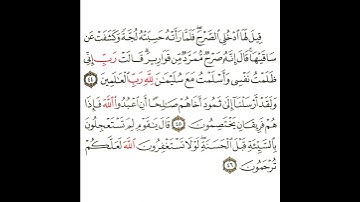 قِيلَ لَهَا ٱدۡخُلِي ٱلصَّرۡحَۖ فَلَمَّا رَأَتۡهُ حَسِبَتۡهُ لُجَّةٗ وَكَشَفَتۡ عَن
سَاقَيۡهَاۚ قَالَ إِنَّهُۥ صَرۡحٞ مُّمَرَّدٞ مِّن قَوَارِيرَۗ قَالَتۡ رَبِّ إِنِّي
ظَلَمۡتُ نَفۡسِي وَأَسۡلَمۡتُ مَعَ سُلَيۡمَٰنَ لِلَّهِ رَبِّ ٱلۡعَٰلَمِينَ ٤٤
وَلَقَدۡ أَرۡسَلۡنَآ إِلَىٰ ثَمُودَ أَخَاهُمۡ صَٰلِحًا أَنِ ٱعۡبُدُواْ ٱللَّهَ فَإِذَا
هُمۡ فَرِيقَانِ يَخۡتَصِمُونَ ٤٥ قَالَ يَٰقَوۡمِ لِمَ تَسۡتَعۡجِلُونَ
بِٱلسَّيِّئَةِ قَبۡلَ ٱلۡحَسَنَةِۖ لَوۡلَا تَسۡتَغۡفِرُونَ ٱللَّهَ لَعَلَّكُمۡ
تُرۡحَمُونَ ٤٦